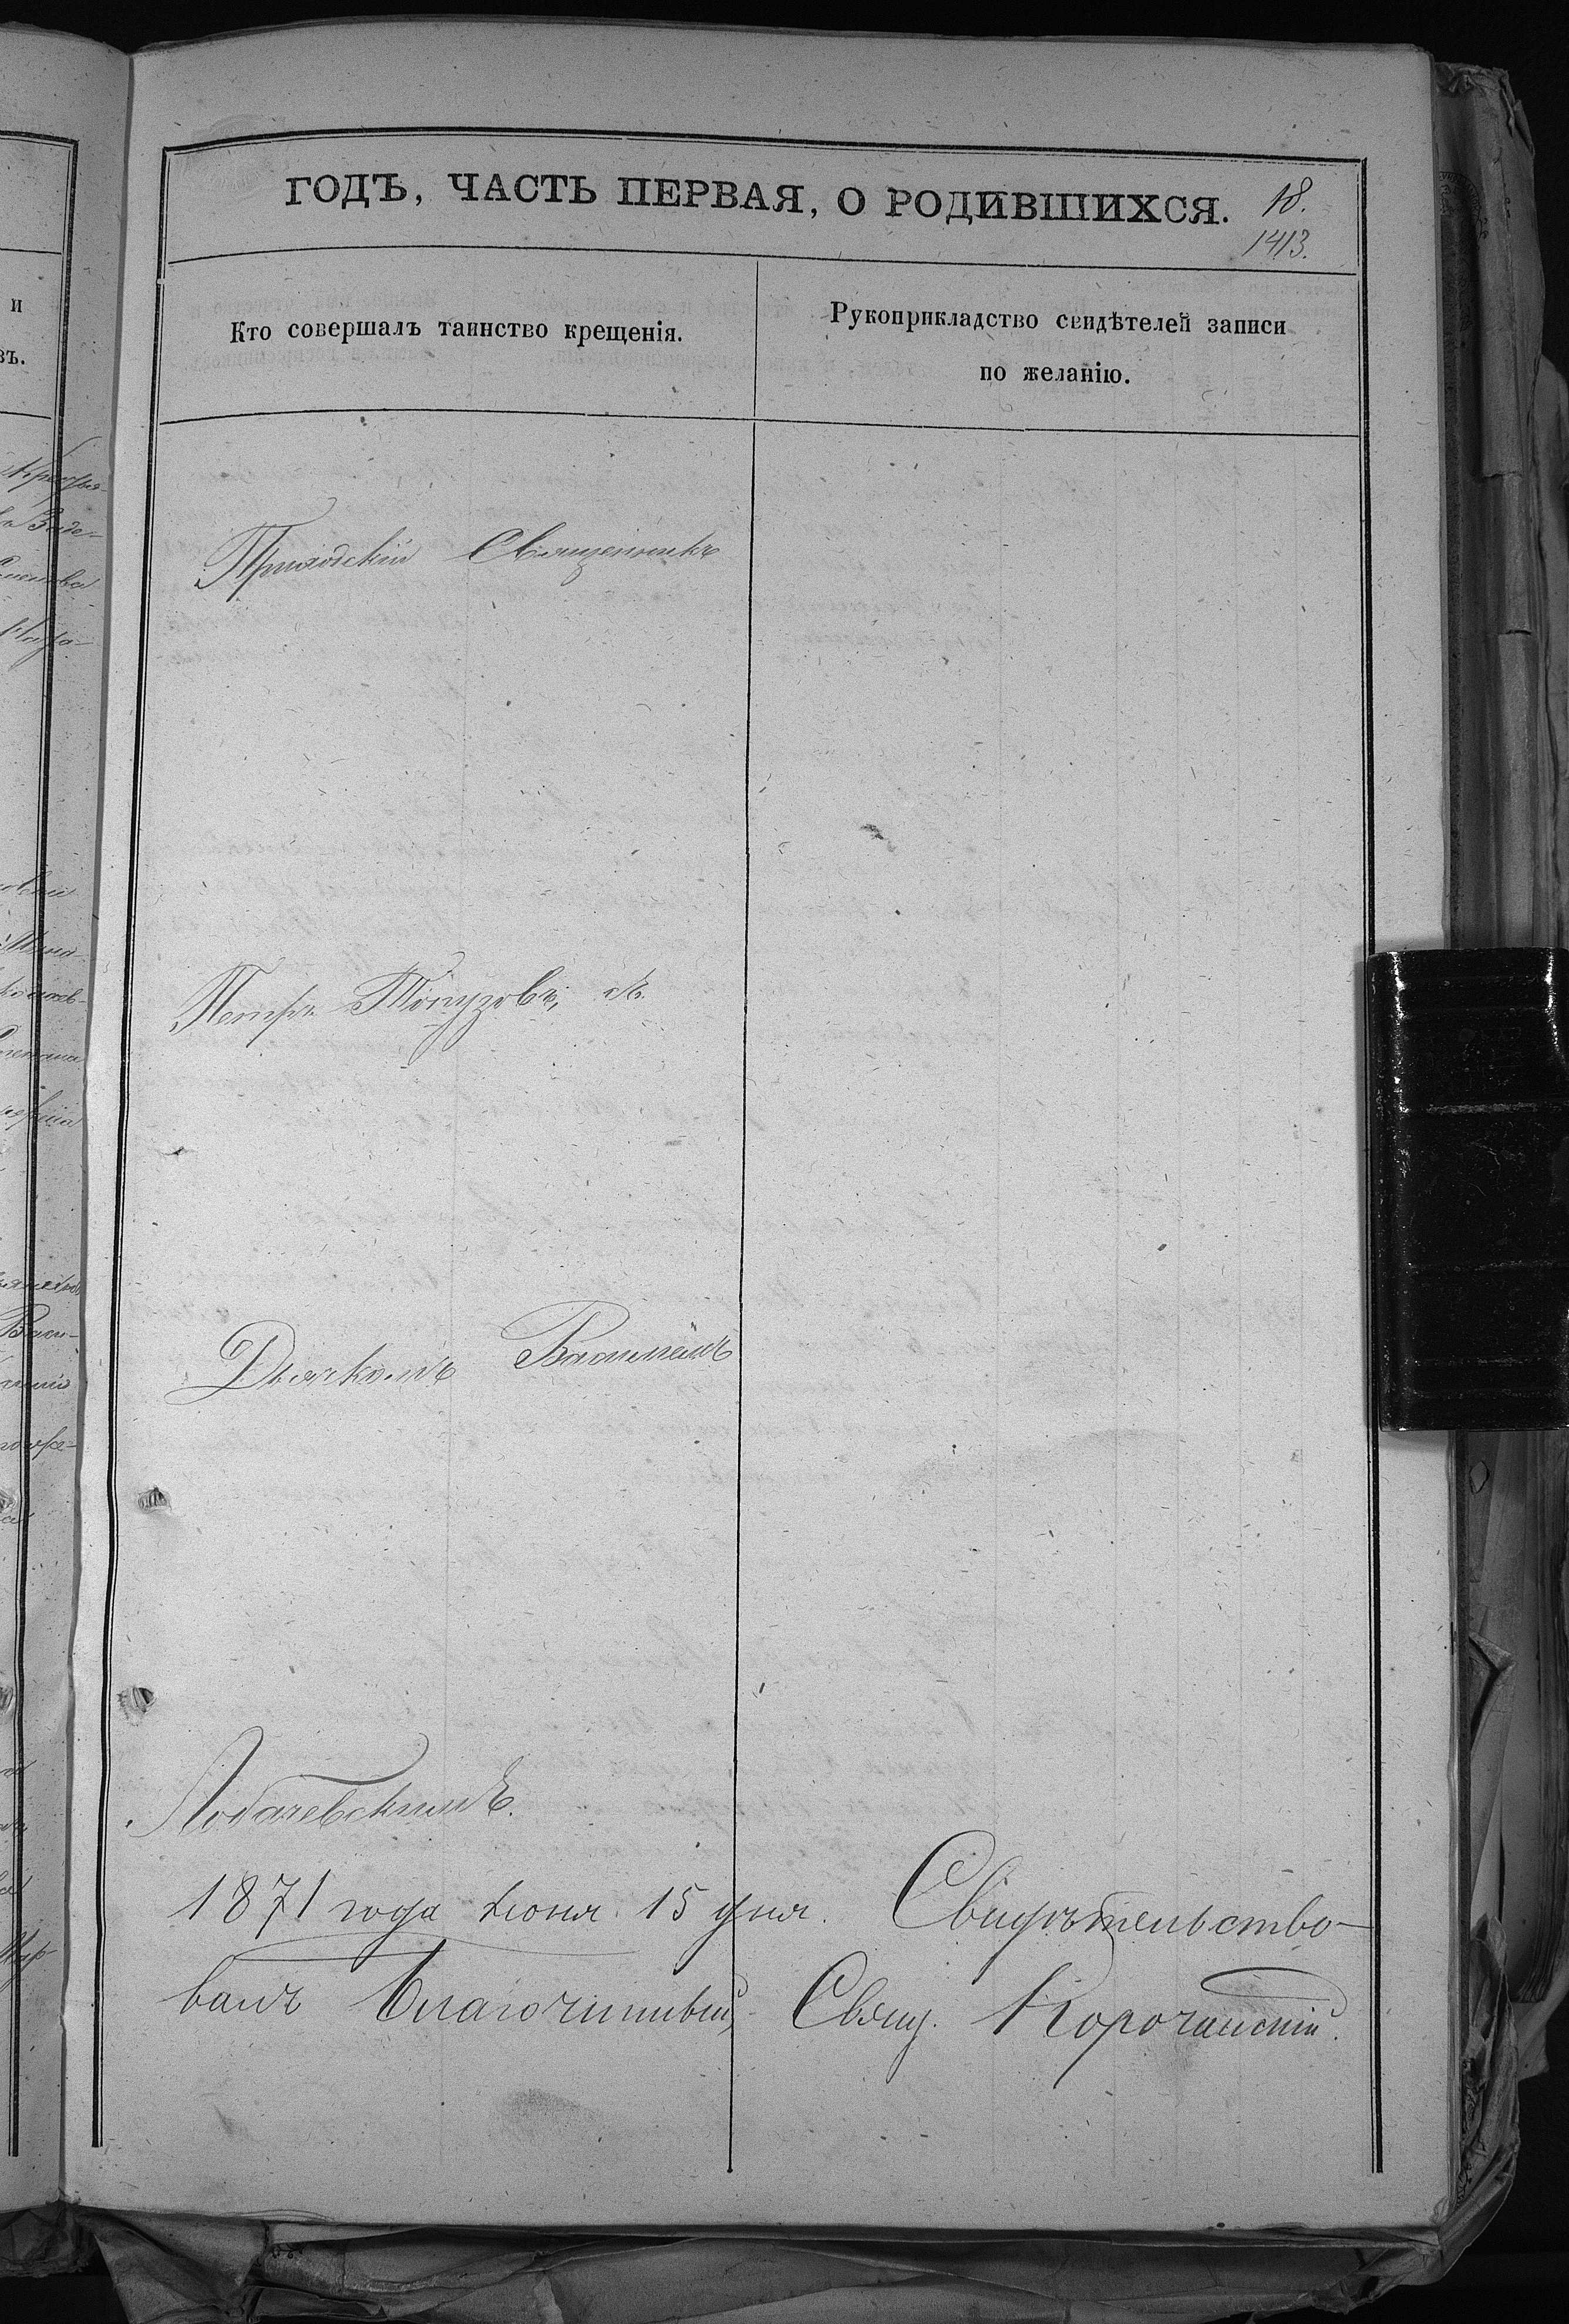 ГОДЪ, ЧАСТЬ ПЕРВАЯ, О РОДИВШИХСЯ.
18.
1413.
Кто совершалъ таинство крещенія.
Рукоприкладство свидѣтелей записи
по желанію.
и
въ.
Приходскій Священникъ
Петръ Топузовъ, съ
Дьячкомъ Василіемъ
Лобачевскимъ.
1871 года Июня 15 дня. Свидѣтельство-
валъ Благочинный, Свящ. Корочанскій.